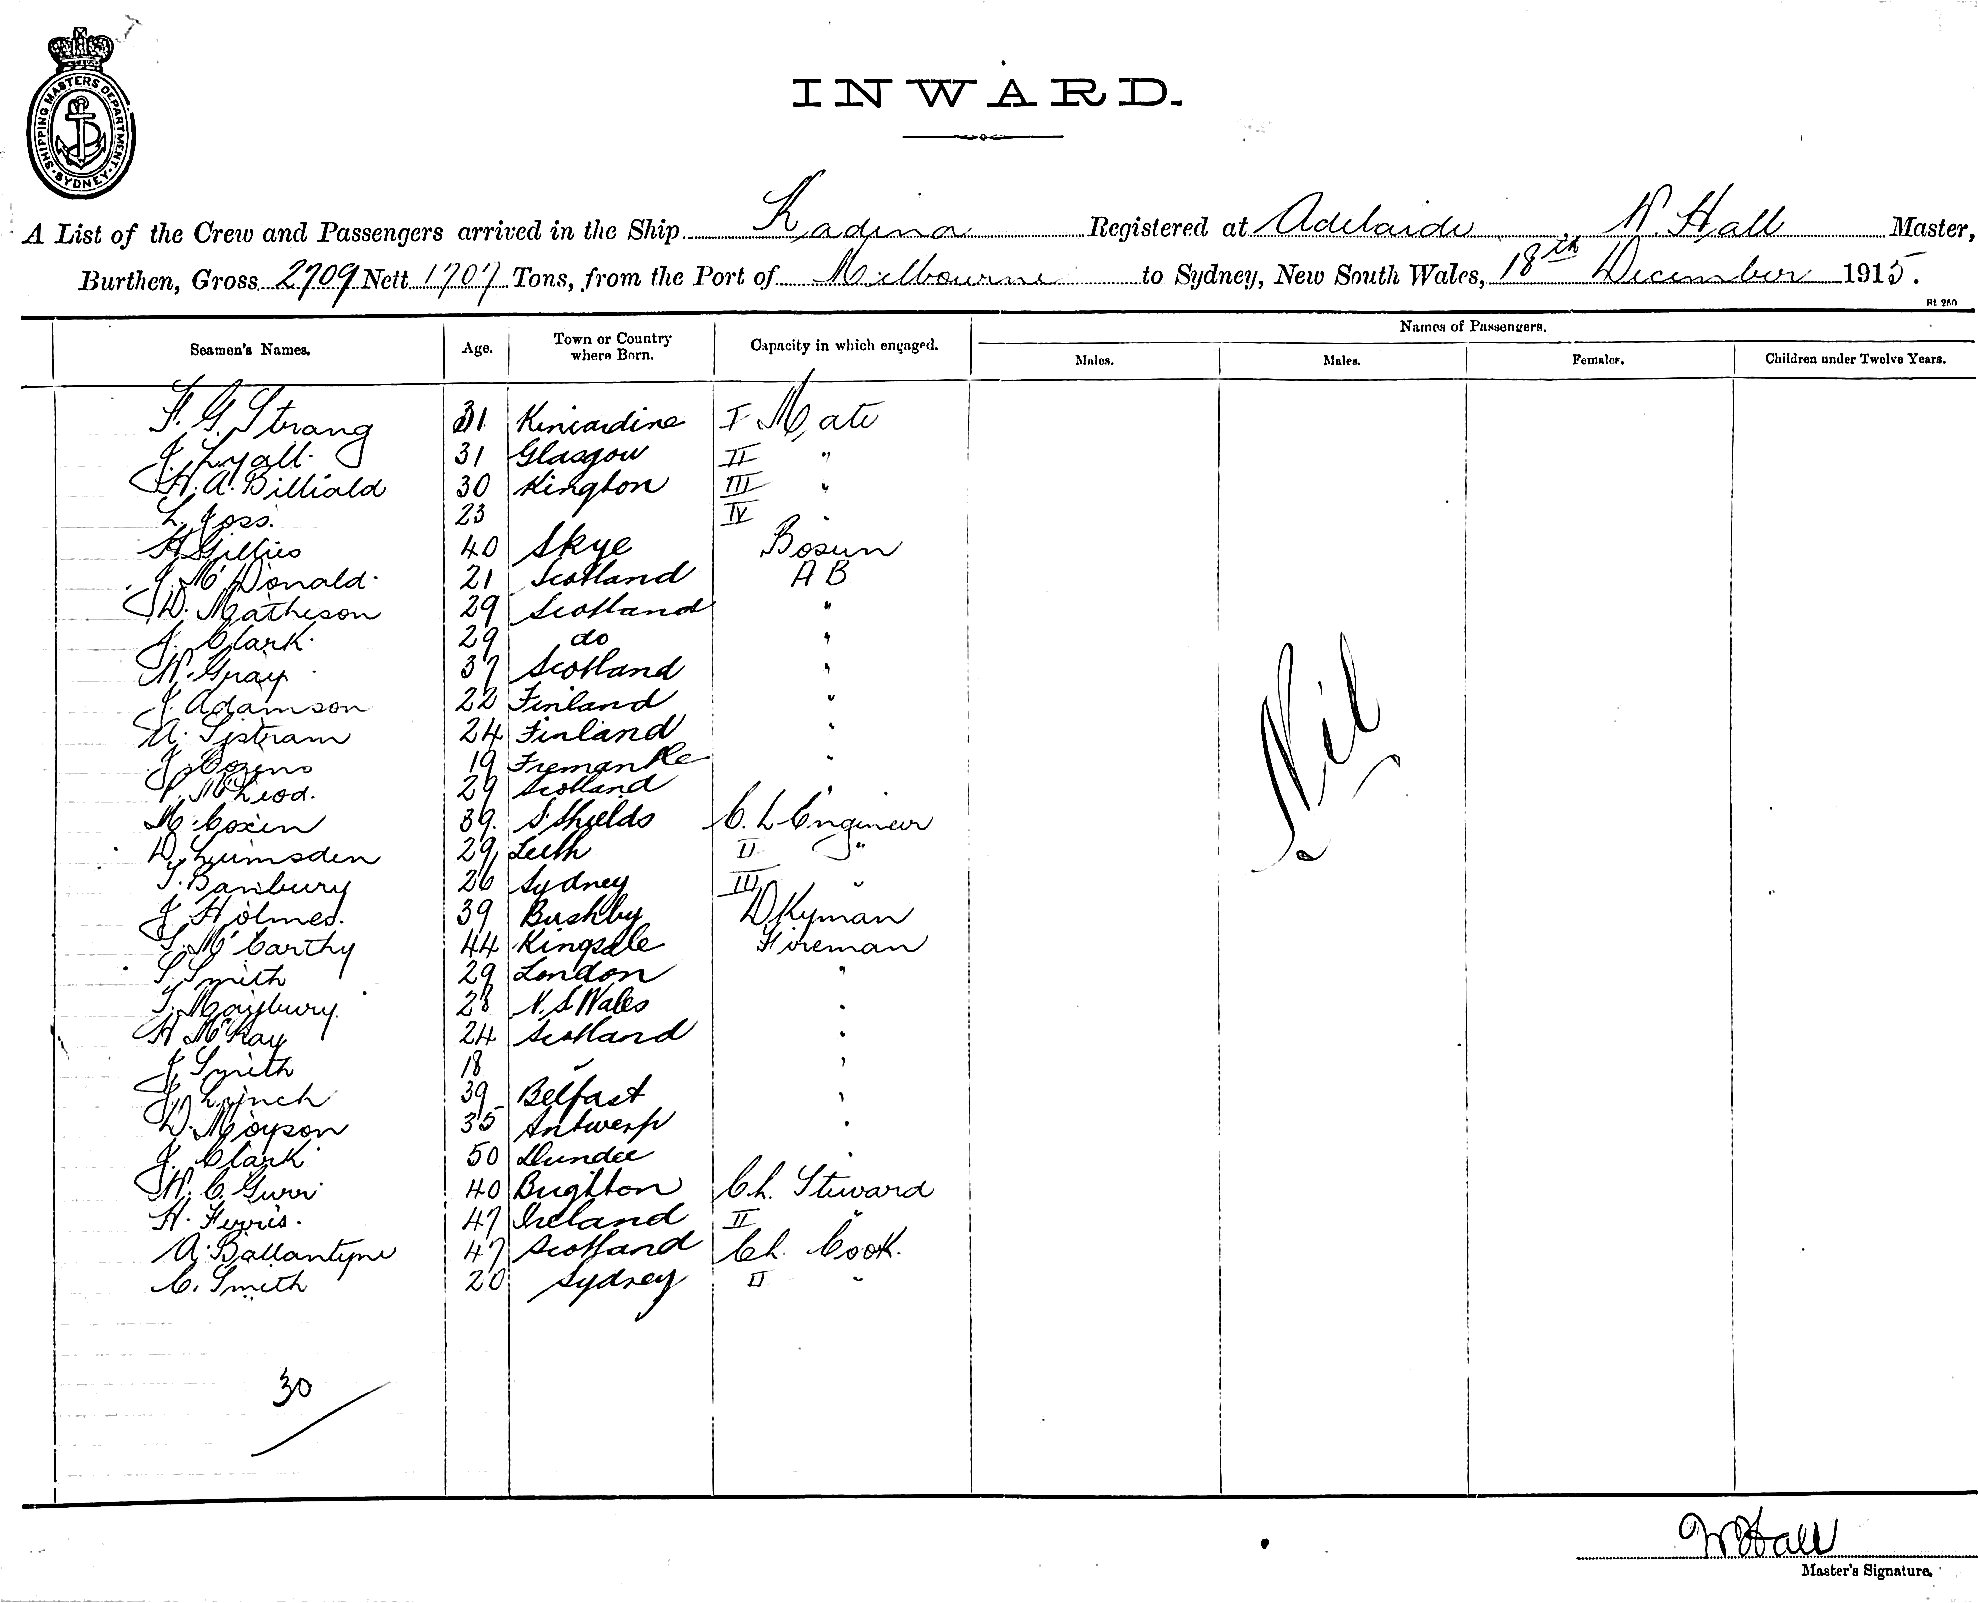 SHIPPING MASTERS DEPARTMENT
SYDNEY
INWARD.
A List of the Crew and Passengers arrived in the Ship Kadina Registered at Adelaide, W. Hall Master,
Burthen, Gross 2709 Nett 1707 Tons, from the Port of Melbourne to Sydney, New South Wales, 18th December 1915.
Names of Passengers.
Seamen's Names. Age. Town or Country where Born. Capacity in which engaged. Males. Males. Females. Children under Twelve Years.
F. G. Strang 31 Kincardine I Mate
J. Lyall 31 Glasgow II "
H. A. Billiald 30 Kington III "
L. Joss. 23 IV "
H. Gillies 40 Skye Bosun
J. McDonald 21 Scotland AB
D. Matheson 29 Scotland "
J. Clark 29 do "
W. Gray 37 Scotland "
J. Adamson 22 Finland "
A. 24 Finland "
J. Cozens 19 Fremantle "
McLeod. 29 Scotland "
M. Coxen 39. S. Shields C. L Engineer
D. Lumsden 29 Leith II "
T. Banbury 26 Sydney III "
J. Holmes. 39 Bushby DKyman
T. McCarthy 44 Kingsale Fireman
S. Smith 29 London "
T. Maybury. 28 N. S. Wales "
H McKay 24 Scotland "
J. Smith 18 " "
J. Lynch 39 Belfast "
D. Moyson 35 Antwerp "
J. Clark 50 Dundee "
W. C. Gurr 40 Brighton Ch. Steward
H. Ferris. 47 Ireland II "
A. Ballantyne 47 Scotland Ch. Cook.
C. Smith 20 Sydney II "
Nil
30
W Hall
Master's Signature.